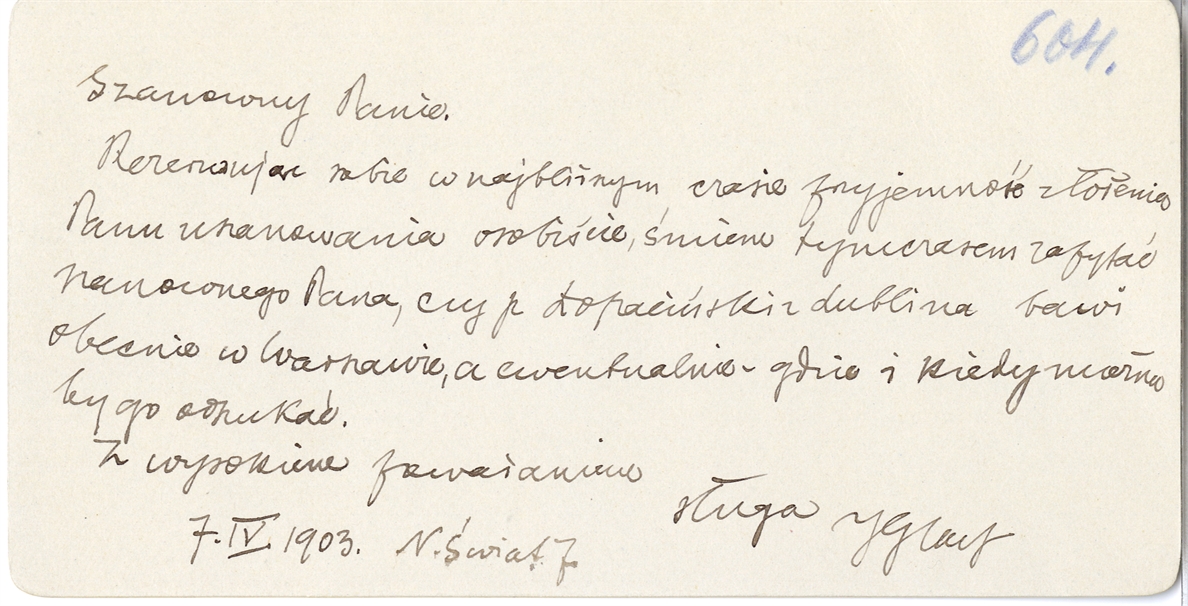 604.
Szanowny Panie.
Rezerwując sobie w najbliższym czasie przyjemność złożenia
Panu uszanowania osobiście, śmiem tymczasem zapytać
szanownego Pana, czy p Łopaciński z Lublina bawi
obecnie w Warszawie, a ewentualnie - gdzie i kiedy można
by go odszukać.
Z wysokiem poważaniem
sługa
7. IV. 1903. N. Świat 7